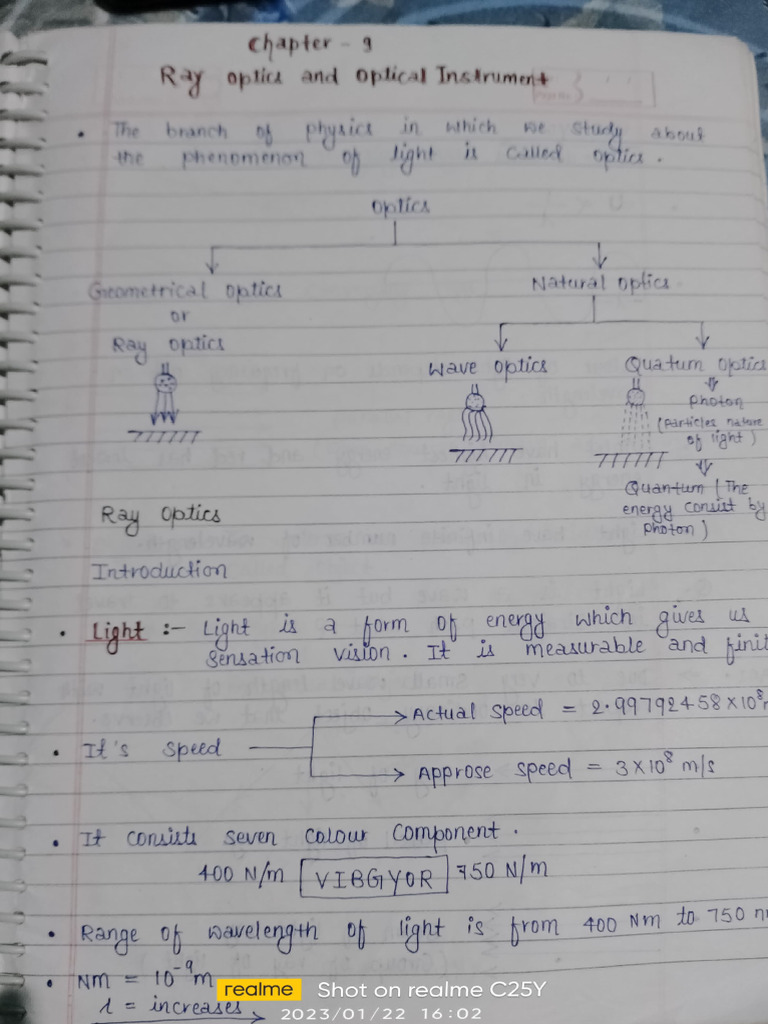 Chapter - 9
Ray optics and optical Instrument
• The branch of physics in which we study about
the phenomenon of light is called optics.
optics
Geometrical optics
or
Ray optics
Natural optics
Wave optics
Quatum optics
Photon
(Particles nature
of light)
Quantum (The
energy consist by
Photon)
Ray Optics
Introduction
• Light :- Light is a form of energy which gives us
sensation vision. It is measurable and finit
• It's speed
Actual speed = 2.99792458 × 10⁸
Approse speed = 3 × 10⁸ m/s
• It consists seven colour component.
400 N/m VIBGYOR 750 N/m
• Range of wavelength of light is from 400 Nm to 750 n
• Nm = 10⁻⁹ m
λ = increases
realme Shot on realme C25Y
2023/01/22 16:02